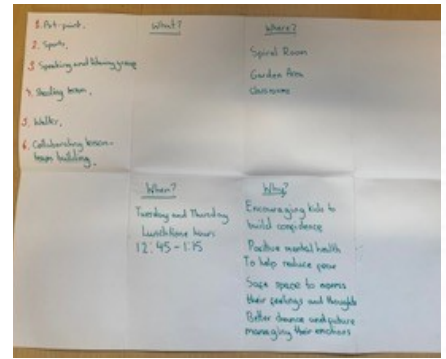 1.
2. Sports.
3. Speaking and listening group
4. Reading team.
5. Walks.
6. Collaborating lesson -
team building.
What?
Where?
Spiral Room
Garden Area
classrooms
When?
Tuesday and Thursday
Lunchtime hours
12:45 - 1:15
Why?
Encouraging kids to
build confidence
Positive mental health
To help reduce fear
Safe space to express
their feelings and thoughts
Better chance and future
managing their emotions